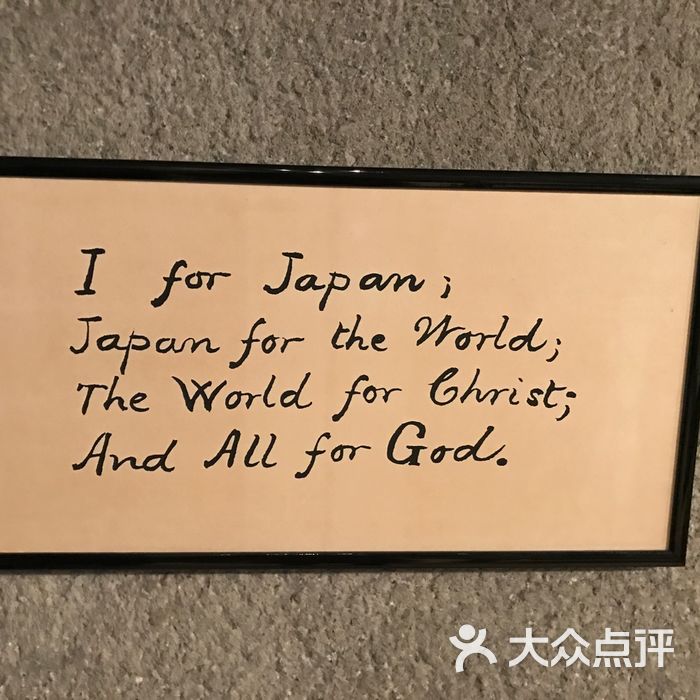 I for Japan;
Japan for the World;
The World for Christ;
And All for God.
大众点评